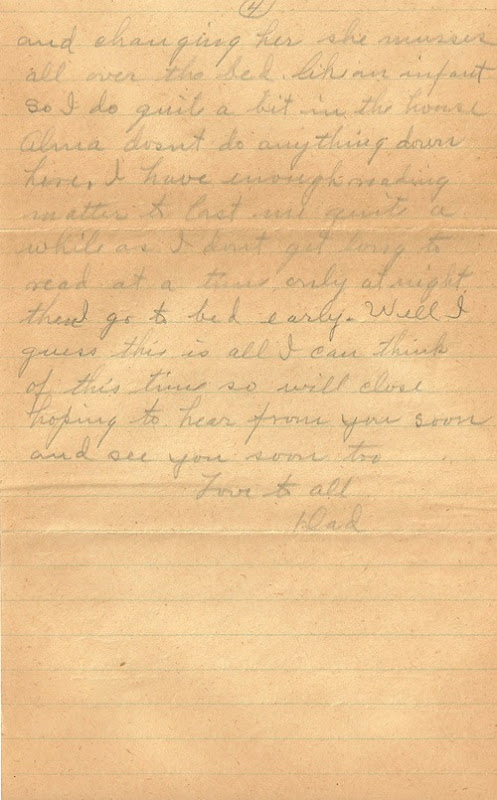 4
and changing her she musses
all over the bed like an infant
so I do quit a bit in the house
Alma dosnt do anything down
here, I have enough reading
matter to last me quite a
while as I dont get long to
read at a time only at night
then I go to bed early. Well I
guess this is all I can think
of this time so will close
hoping to hear from you soon
and see you soon too
Love to all
Dad